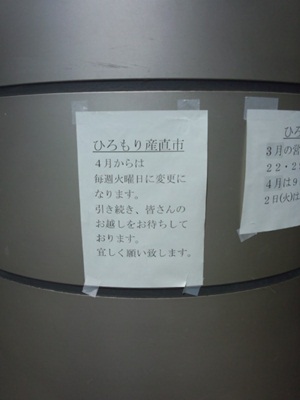 ひろもり産直市
4月からは
毎週火曜日に変更に
なります。
引き続き、皆さんの
お越しをお待ちして
おります。
宜しく願い致します。
ひろ
3月の営
22・2
4月は9
2日(火)は